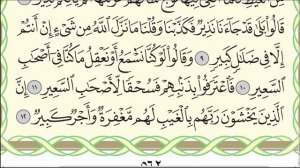 قَالُوا۟ بَلَىٰ قَدْ جَآءَنَا نَذِيرٌ فَكَذَّبْنَا وَقُلْنَا مَا نَزَّلَ ٱللَّهُ مِن شَىْءٍ إِنْ أَنتُمْ
إِلَّا فِى ضَلَٰلٍ كَبِيرٍ ٩ وَقَالُوا۟ لَوْ كُنَّا نَسْمَعُ أَوْ نَعْقِلُ مَا كُنَّا فِىٓ أَصْحَٰبِ
ٱلسَّعِيرِ ١٠ فَٱعْتَرَفُوا۟ بِذَنۢبِهِمْ فَسُحْقًا لِّأَصْحَٰبِ ٱلسَّعِيرِ ١١ إِنَّ
ٱلَّذِينَ يَخْشَوْنَ رَبَّهُم بِٱلْغَيْبِ لَهُم مَّغْفِرَةٌ وَأَجْرٌ كَبِيرٌ ١٢
٥٦٢